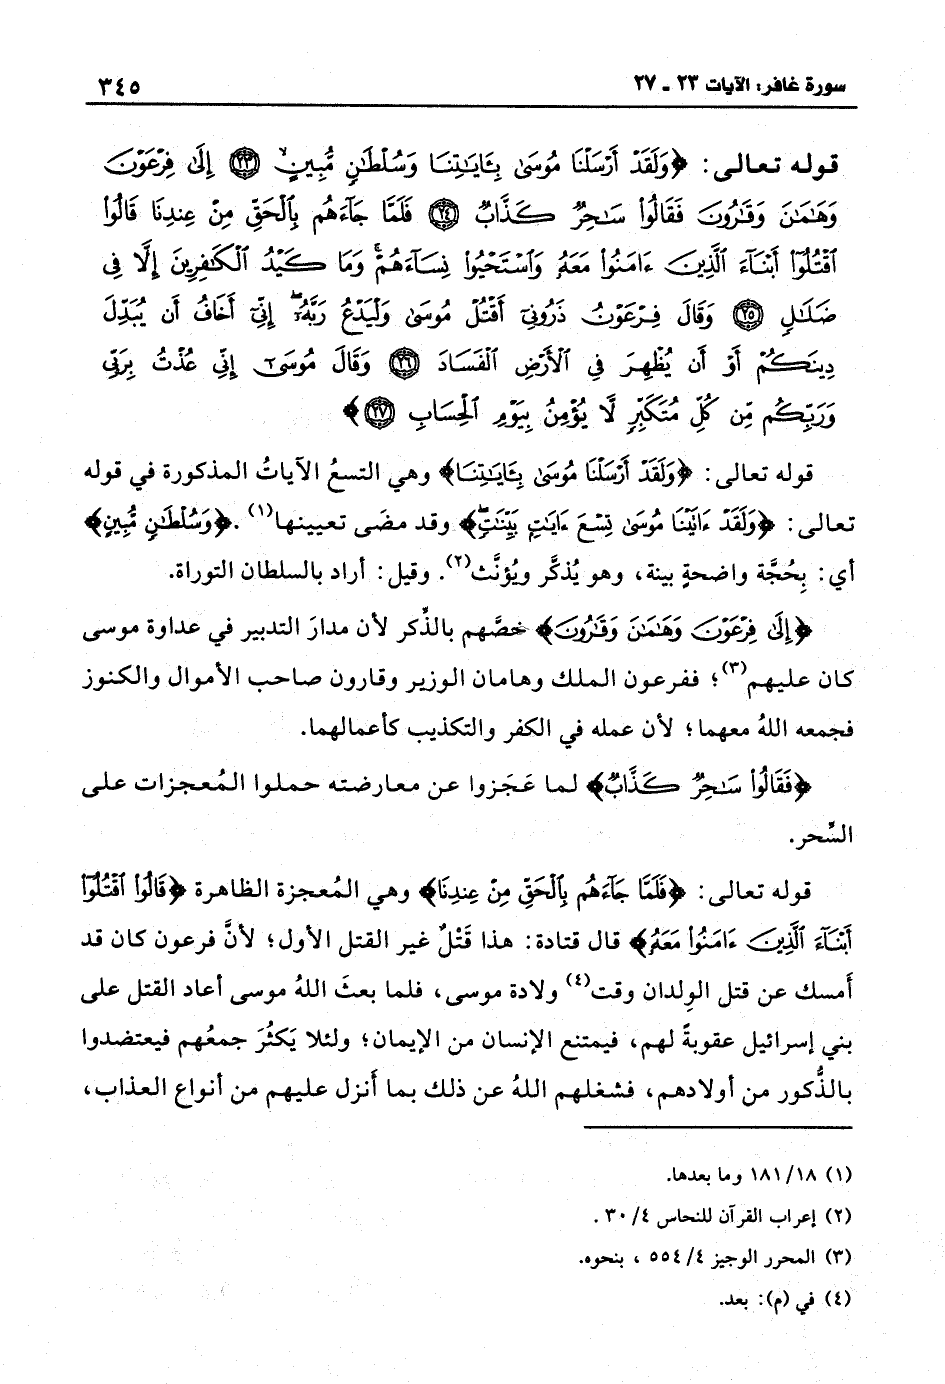 سورة غافر: الآيات ٢٣ - ٢٧ ٣٤٥
قوله تعالى: ﴿وَلَقَدْ أَرْسَلْنَا مُوسَىٰ بِـَٔايَـٰتِنَا وَسُلْطَـٰنٍ مُّبِينٍ ۝٢٣ إِلَىٰ فِرْعَوْنَ
وَهَـٰمَـٰنَ وَقَـٰرُونَ فَقَالُوا۟ سَـٰحِرٌ كَذَّابٌ ۝٢٤ فَلَمَّا جَآءَهُم بِٱلْحَقِّ مِنْ عِندِنَا قَالُوا۟
ٱقْتُلُوٓا۟ أَبْنَآءَ ٱلَّذِينَ ءَامَنُوا۟ مَعَهُۥ وَٱسْتَحْيُوا۟ نِسَآءَهُمْ ۚ وَمَا كَيْدُ ٱلْكَـٰفِرِينَ إِلَّا فِى
ضَلَـٰلٍ ۝٢٥ وَقَالَ فِرْعَوْنُ ذَرُونِىٓ أَقْتُلْ مُوسَىٰ وَلْيَدْعُ رَبَّهُۥٓ ۖ إِنِّىٓ أَخَافُ أَن يُبَدِّلَ
دِينَكُمْ أَوْ أَن يُظْهِرَ فِى ٱلْأَرْضِ ٱلْفَسَادَ ۝٢٦ وَقَالَ مُوسَىٰٓ إِنِّى عُذْتُ بِرَبِّى
وَرَبِّكُم مِّن كُلِّ مُتَكَبِّرٍ لَّا يُؤْمِنُ بِيَوْمِ ٱلْحِسَابِ ۝٢٧﴾
قوله تعالى: ﴿وَلَقَدْ أَرْسَلْنَا مُوسَىٰ بِـَٔايَـٰتِنَا﴾ وهي التسعُ الآياتُ المذكورة في قوله
تعالى: ﴿وَلَقَدْ ءَاتَيْنَا مُوسَىٰ تِسْعَ ءَايَـٰتٍۭ بَيِّنَـٰتٍ ۖ﴾ وقد مضَى تعيينها(١). ﴿وَسُلْطَـٰنٍ مُّبِينٍ﴾
أي: بِحُجَّة واضحةٍ بينة، وهو يُذكَّر ويُؤنَّث(٢). وقيل: أراد بالسلطان التوراة.
﴿إِلَىٰ فِرْعَوْنَ وَهَـٰمَـٰنَ وَقَـٰرُونَ﴾ خصَّهم بالذِّكر لأن مدارَ التدبير في عداوة موسى
كان عليهم(٣)؛ ففرعون الملك وهامان الوزير وقارون صاحب الأموال والكنوز
فجمعه اللهُ معهما؛ لأن عمله في الكفر والتكذيب كأعمالهما.
﴿فَقَالُوا۟ سَـٰحِرٌ كَذَّابٌ﴾ لما عَجَزوا عن معارضته حملوا المُعجزات على
السِّحر.
قوله تعالى: ﴿فَلَمَّا جَآءَهُم بِٱلْحَقِّ مِنْ عِندِنَا﴾ وهي المُعجزة الظاهرة ﴿قَالُوا۟ ٱقْتُلُوٓا۟
أَبْنَآءَ ٱلَّذِينَ ءَامَنُوا۟ مَعَهُۥ﴾ قال قتادة: هذا قَتْلٌ غير القتل الأول؛ لأنَّ فرعون كان قد
أَمسك عن قتل الوِلدان وقت(٤) ولادة موسى، فلما بعثَ اللهُ موسى أعاد القتل على
بني إسرائيل عقوبةً لهم، فيمتنع الإنسان من الإيمان؛ ولئلا يَكثُرَ جمعُهم فيعتضدوا
بالذُّكور من أولادهم، فشغلهم اللهُ عن ذلك بما أَنزل عليهم من أنواع العذاب،
(١) ١٨١/١٨ وما بعدها.
(٢) إعراب القرآن للنحاس ٣٠/٤ .
(٣) المحرر الوجيز ٥٥٤/٤ ، بنحوه.
(٤) في (م): بعد.